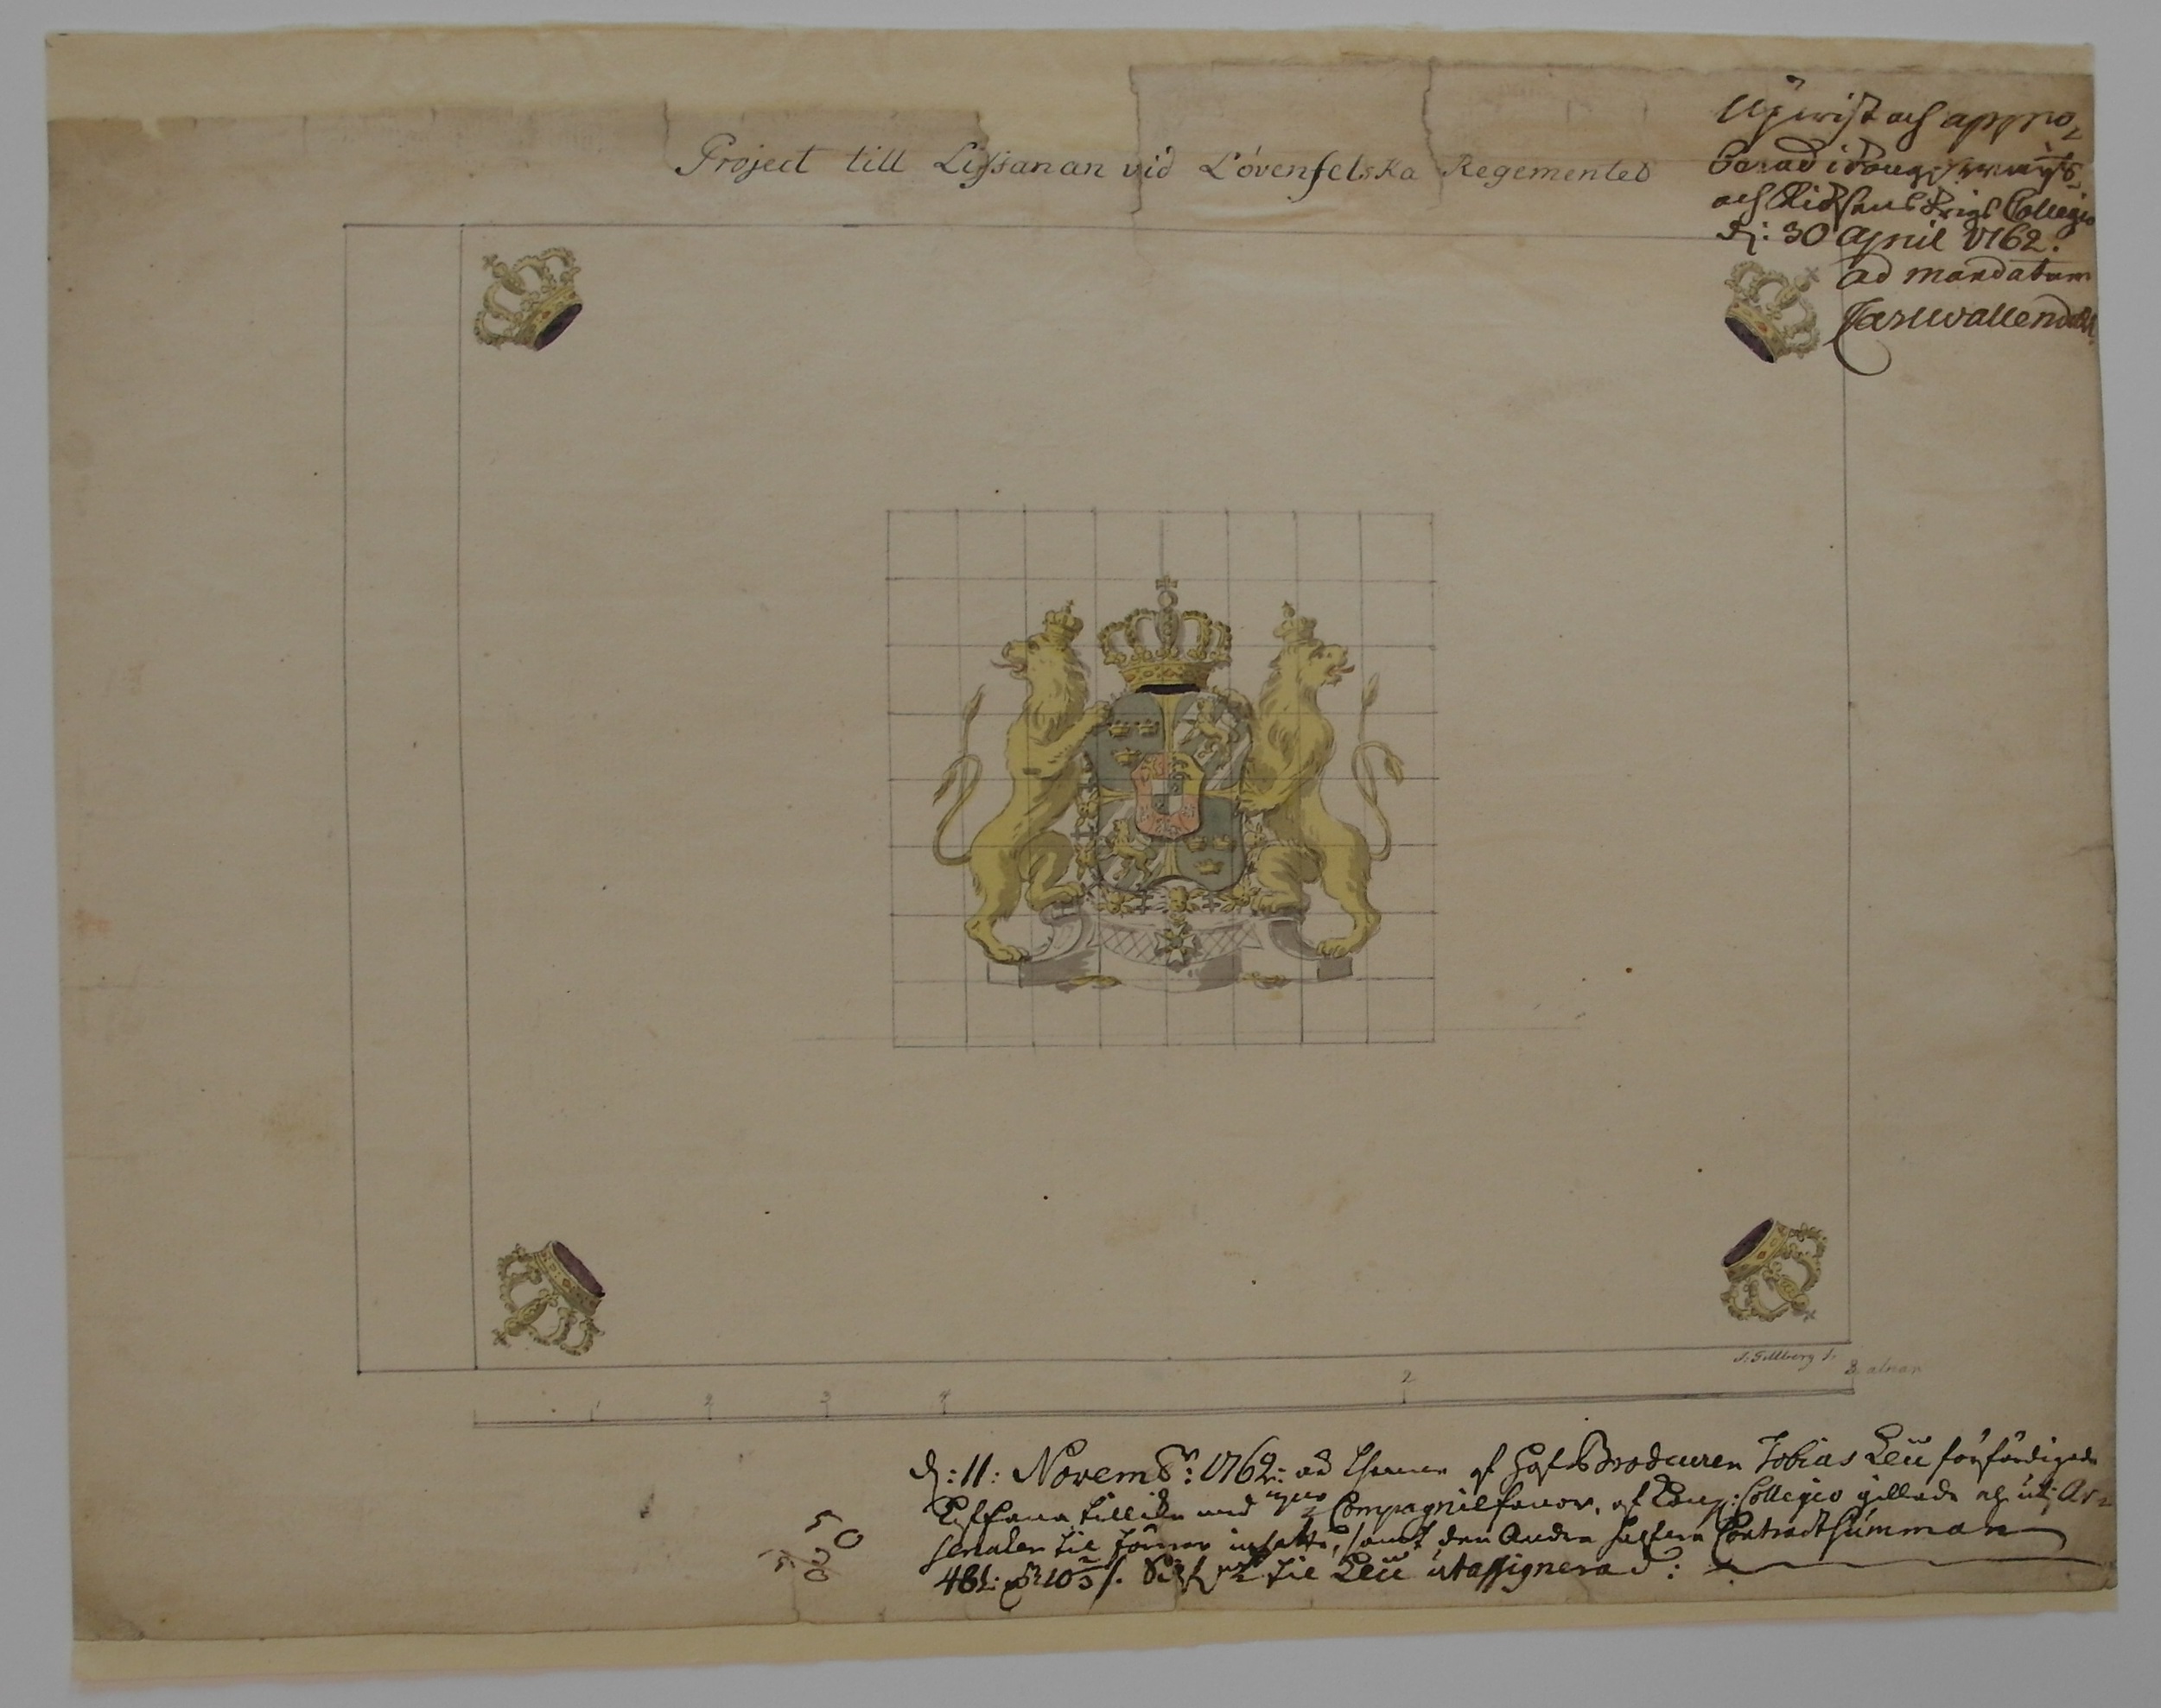 Project till Lifsanan vid Lövenfelska Regementet
Upwist och appro-
berad i Kongl.
och Rikssens Krigs Collegio
d: 30 April 1762.
ad mandatum
Carl Wallendahl
J. Gillberg f.
3 alnar
1 2 3 4 2
d: 11: Novemb: 1762: af Hof Brodeuren Tobias Leü förfärdigade
Liffana tillika med Compagniefanor, af Kongl: Collegio gillade och uti Ar-
senalen til insatte, samt den Andra helften Contractsumman
til Leü utassignerad:
50